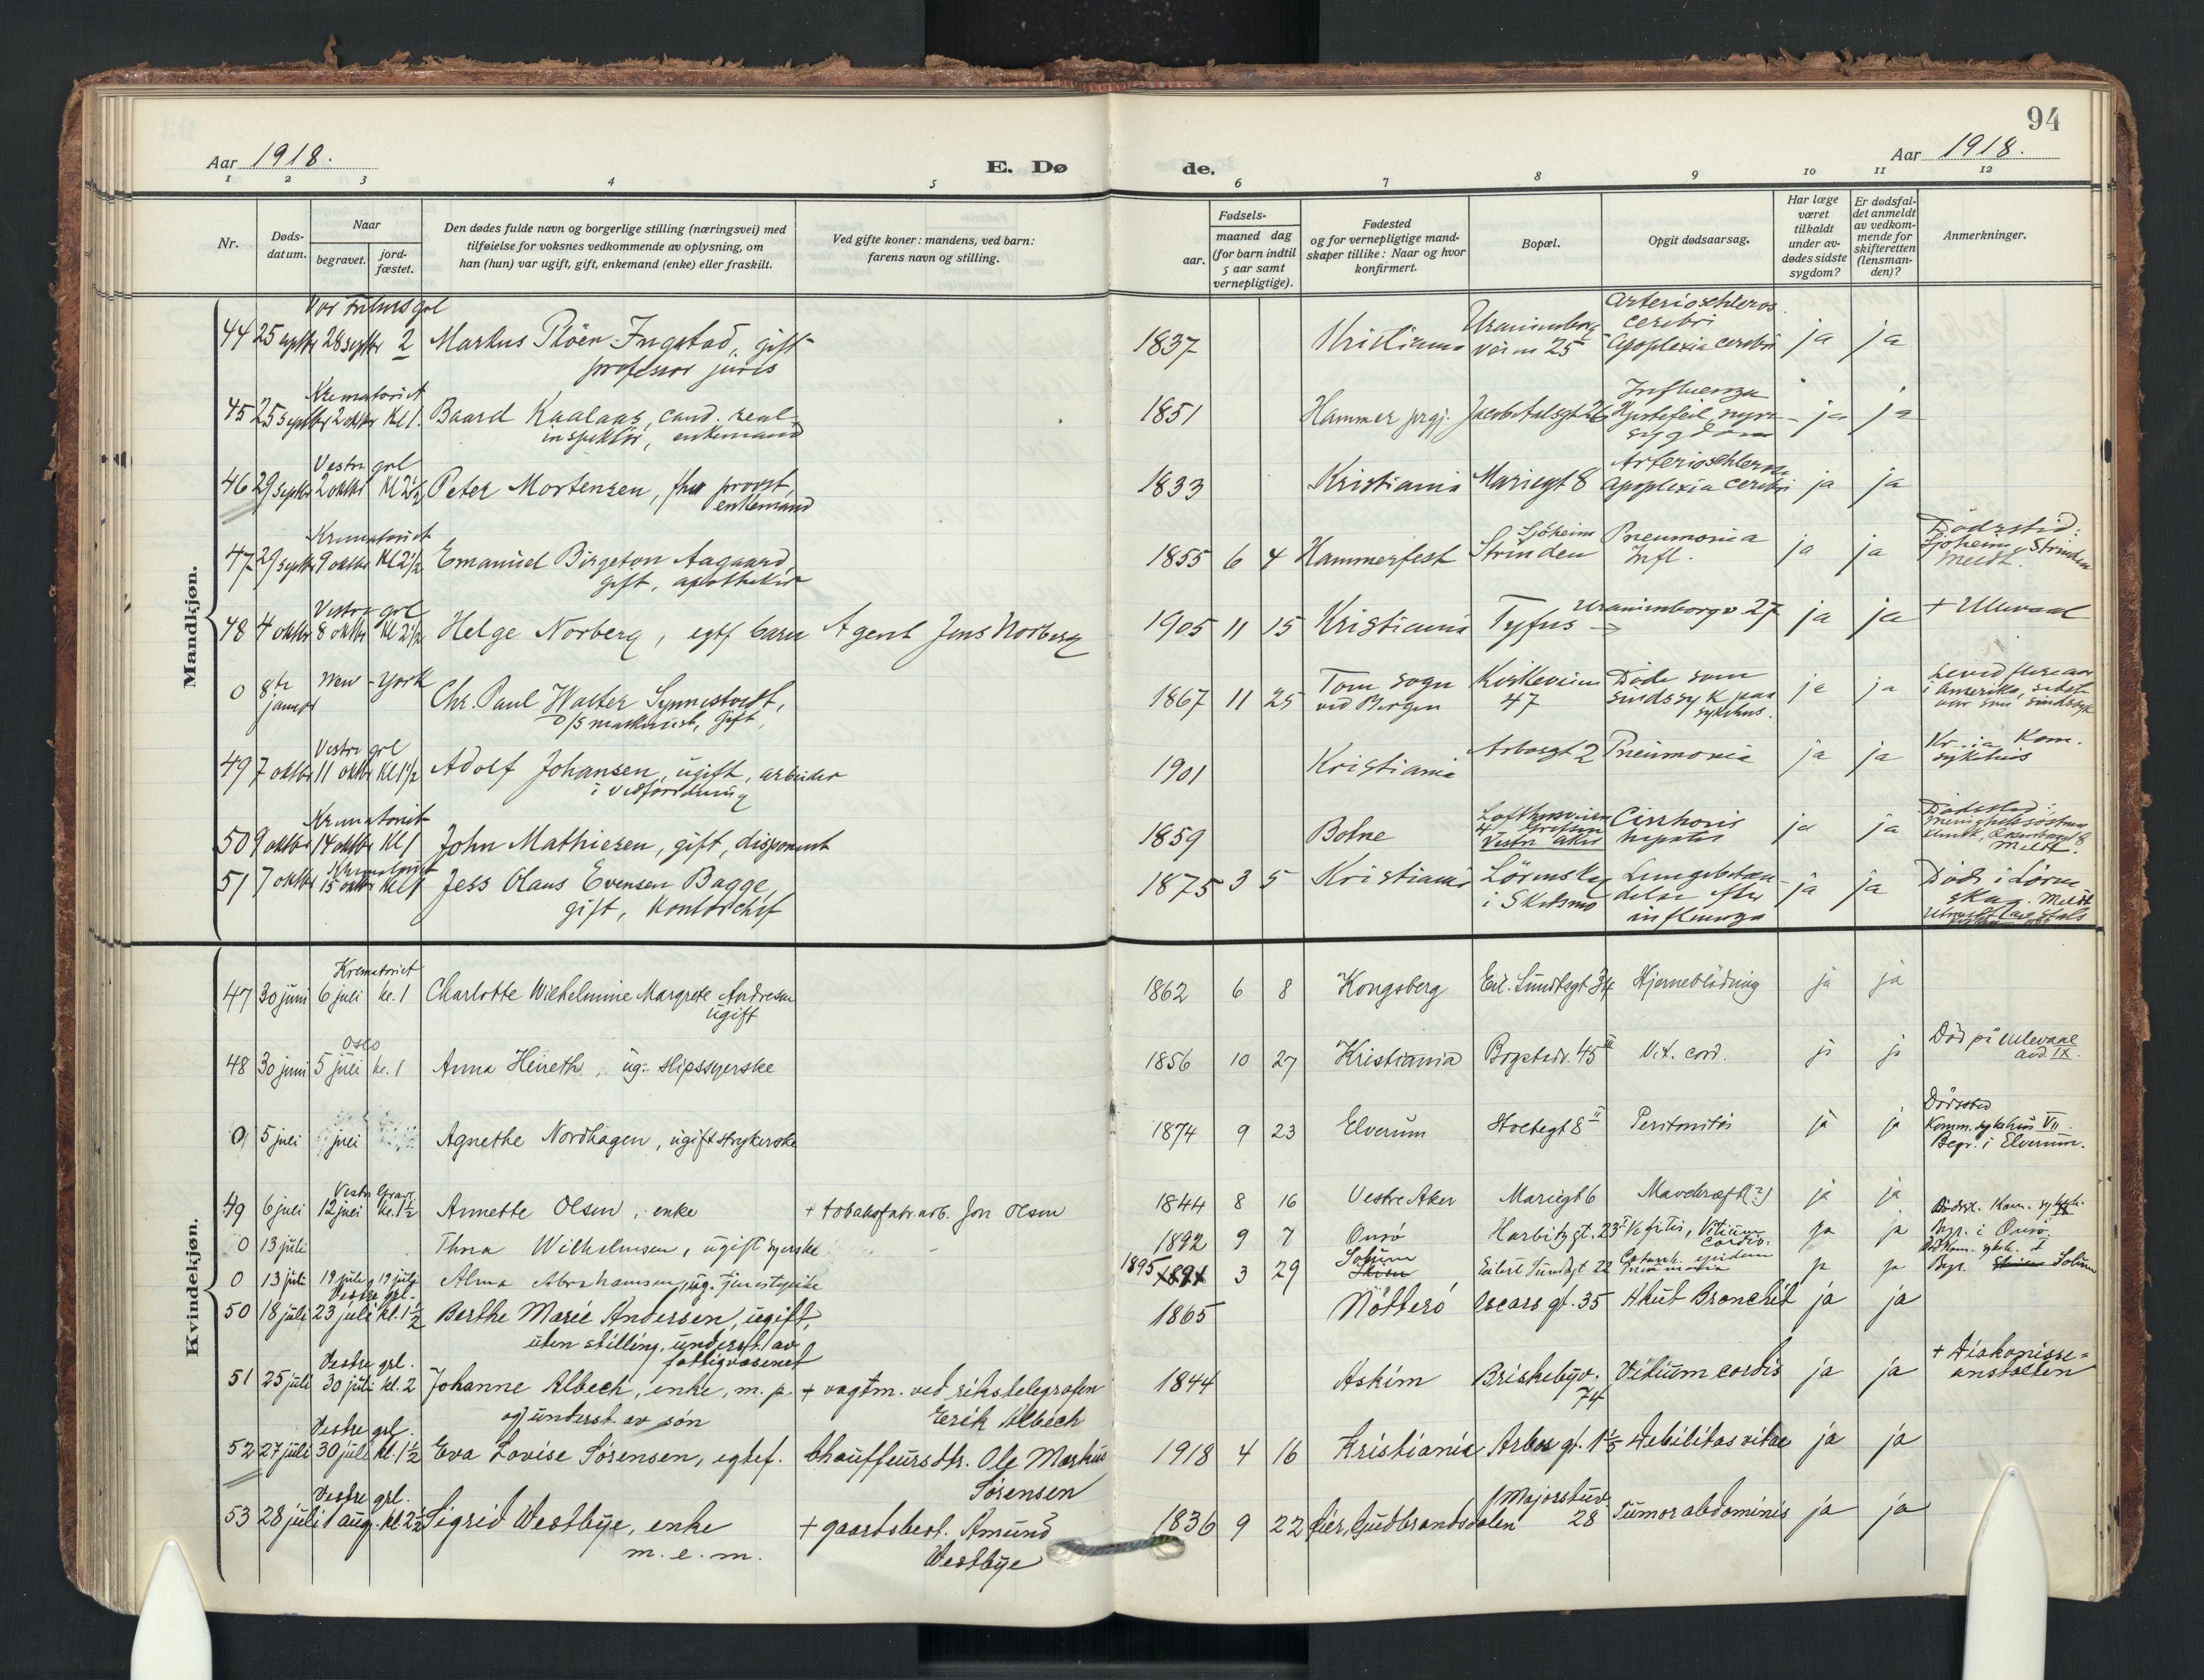 94
Aar 1918.
E. Dø
de.
Aar 1918.
1 2 3 4 5 6 7 8 9 10 11 12
Nr.
Døds-
datum.
Naar
begravet.
jord-
fæstet.
Den dødes fulde navn og borgerlige stilling (næringsvei) med
tilføielse for voksnes vedkommende av oplysning, om
han (hun) var ugift, gift, enkemand (enke) eller fraskilt.
Ved gifte koner: mandens, ved barn:
farens navn og stilling.
Fødsels-
aar.
maaned dag
(for barn indtil
5 aar samt
vernepligtige).
Fødested
og for vernepligtige mand-
skaper tillike: Naar og hvor
konfirmert.
Bopæl.
Opgit dødsaarsag.
Har læge
været
tilkaldt
under av-
dødes sidste
sygdom?
Er dødsfal-
det anmeldt
av vedkom-
mende for
skifteretten
(lensman-
den)?
Anmerkninger.
Mandkjøn.
Vor Frelsers grl Arterioschleros.
Uranienborg cerebri
44 25 septbr 28 septbr 2 Markus Pløen Ingstad, gift 1837 Kristiania veien 25 Apoplexia cerebri ja ja
professor juris
Krematoriet Influenza
45 25 septbr 2 oktbr Kl 1. Baard Kaalaas, cand. real 1851 Hammer prgj. Jacob Aalsgt 26 Hjertefeil nyre- ja ja
inspektör, enkemand sygdom
Vestre grl Arterioschlerose
46 29 septbr 2 oktbr Kl 2 1/2 Peter Mortensen, fhv provst, 1833 Kristiania Mariegt 8 Apoplexia cerebri ja ja
enkemand
Krematoriet Sjöheim Dødssted:
47 29 septbr 9 oktbr Kl 2 1/2 Emanuel Birgeton Aagaard, 1855 6 4 Hammerfest Strinden Pneumonia ja ja Sjöheim, Strinden
gift, apotheker Infl. Meldt.
Vestre grl Uranienborgv 27
48 4 oktbr 8 oktbr Kl 2 1/2 Helge Norberg, egtf barn Agent Jens Norberg 1905 11 15 Kristiania Tyfus ja ja + Ullevaal
0 8de januar New-York Chr. Paul Walter Synnestvedt, 1867 11 25 Torn sogn Kirkeveien Døde som ja ja Levet flere aar
D/S maskinist, gift, ved Bergen 47 sindssyk paa i Amerika, sidst
sykehus. var sindssyk
Vestre grl
49 7 oktbr 11 oktbr Kl 1 1/2 Adolf Johansen, ugift, arbeider 1901 Kristiania Arbosgt 2 Pneumonia ja ja Kr.ia Kom.
i vedforedning sykehus
Krematoriet Lofthusveien Dødssted:
50 9 oktbr 14 oktbr Kl 1 John Mathiesen, gift, disponent 1859 Botne 4 Grefsen Cirrhosis ja ja
Vestre Aker hepatis Meldt.
Krematoriet
51 7 oktbr 15 oktbr Kl 1 Jess Olaus Evensen Bagge, 1875 3 5 Kristiania Lörenskog Lungebetæn- ja ja Død i Lören
gift, kontorchef i Skedsmo delse efter skog. Meldt
influenza
Kvindekjøn.
Krematoriet
47 30 juni 6 juli kl. 1 Charlotte Wilhelmine Margrete Andresen 1862 6 8 Kongsberg Eil. Sundtsgt 34 Hjerneblødning ja ja
ugift
Oslo
48 30 juni 5 juli kl. 1 Anna Heireth, ug. slipssyerske 1856 10 27 Kristiania Bogstadv. 45 II Vit. cord. ja ja Død på Ullevaal
avd. IX.
Dødssted
0 5 juli juli Agnethe Nordhagen, ugift strykerske 1874 9 23 Elverum Holtegt 8 II Peritonitis ja ja Komm. sykehus VII.
Begr. i Elverum.
Vestre Gravl.
49 6 juli 12 juli kl. 1 1/2 Annette Olsen, enke + tobaksfabr. arb. Jon Olsen 1844 8 16 Vestre Aker Mariegt 6 Mavekræft(?) ja ja
0 13 juli Thora Wilhelmsen, ugift syerske 1892 9 7 Onsø Harbitzgt. 23 I Nefritis, Vitium cordis. ja ja Begr. i Onsø.
0 13 juli 19 juli 19 juli Alma Abrahamsen, ug. tjenestepike 1895 1891 3 29 Solum Skien Eilert Sundtsgt 22 Catarrh. epidem Pneumonia ja ja Begr. Skien Solum
Vestre grl.
50 18 juli 23 juli kl. 1 1/2 Berthe Marie Andersen, ugift, 1865 Nötterö Oscars gt. 35 Akut Bronchit ja ja
uten stilling, underst. av
fattigvæsenet
Vestre grl. + Diakonisse-
51 25 juli 30 juli kl. 2 Johanne Albech, enke, m. p. + vagtm. ved rikstelegrafen 1844 Askim Briskebyv. Vitium cordis ja ja anstalten
og underst. av søn Erik Albech 74
Vestre grl.
52 27 juli 30 juli kl. 1 1/2 Eva Lovise Sørensen, egtef. Chauffeurs dtr. Ole Markus 1918 4 16 Kristiania Arbos gt. 1 Debilitas vitae ja ja
Sørensen
Vestre grl. Majorstuv.
53 28 juli 1 aug. kl. 2 1/2 Sigrid Westbye, enke + gaardsbest. Amund 1836 9 22 Lier, Gudbrandsdalen 28 Tumor abdominis ja ja
m. e. m. Westbye